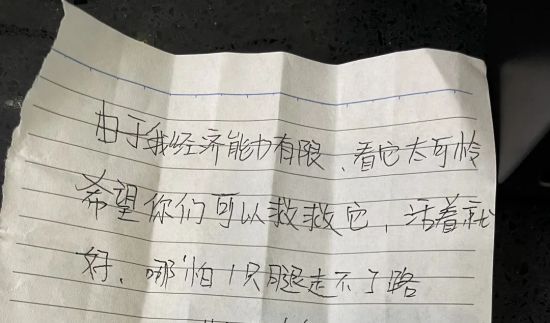 由于我经济能力有限、看它太可怜
希望你们可以救救它，活着就
好、哪怕1只腿走不了路